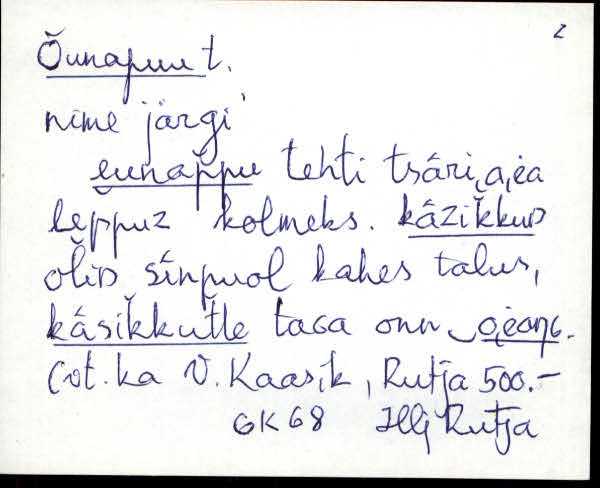 2
Õunapuu t.
nime järgi
eunappu tehti tsâri, a, ėa
leppuz kolmeks. kâzikkuD
oliD sinpuol kahes talus,
kâsikkutle taGa onn
(vt. ka V. Kaasik, Rutja 500.-
GK68 Hlj Rutja